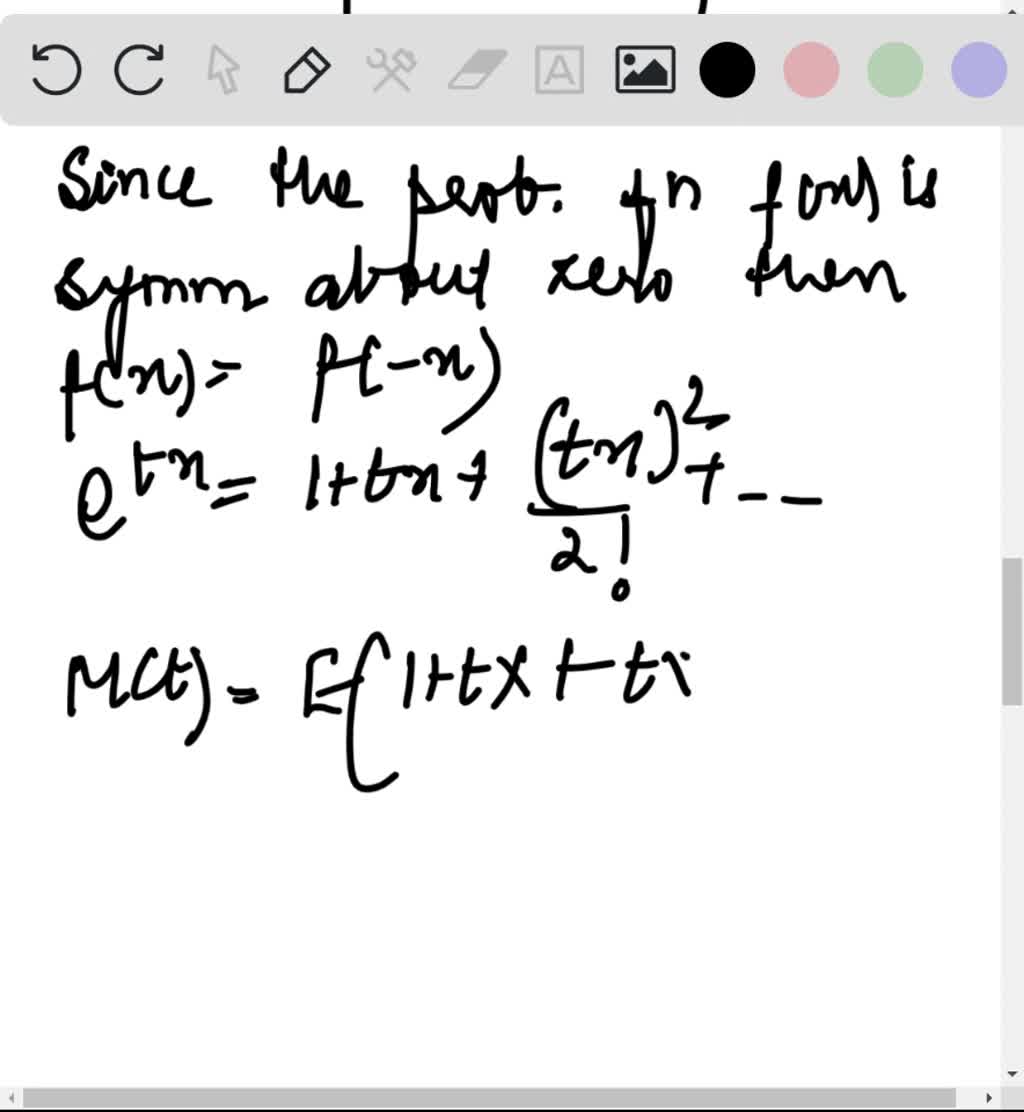 Since the prob. fn f(x) is
symm about zero then
f(x) = f(-x)
e^{tx} = 1 + tx + (tx)^2/2! + - -
M(t) = E[1 + tX + tx